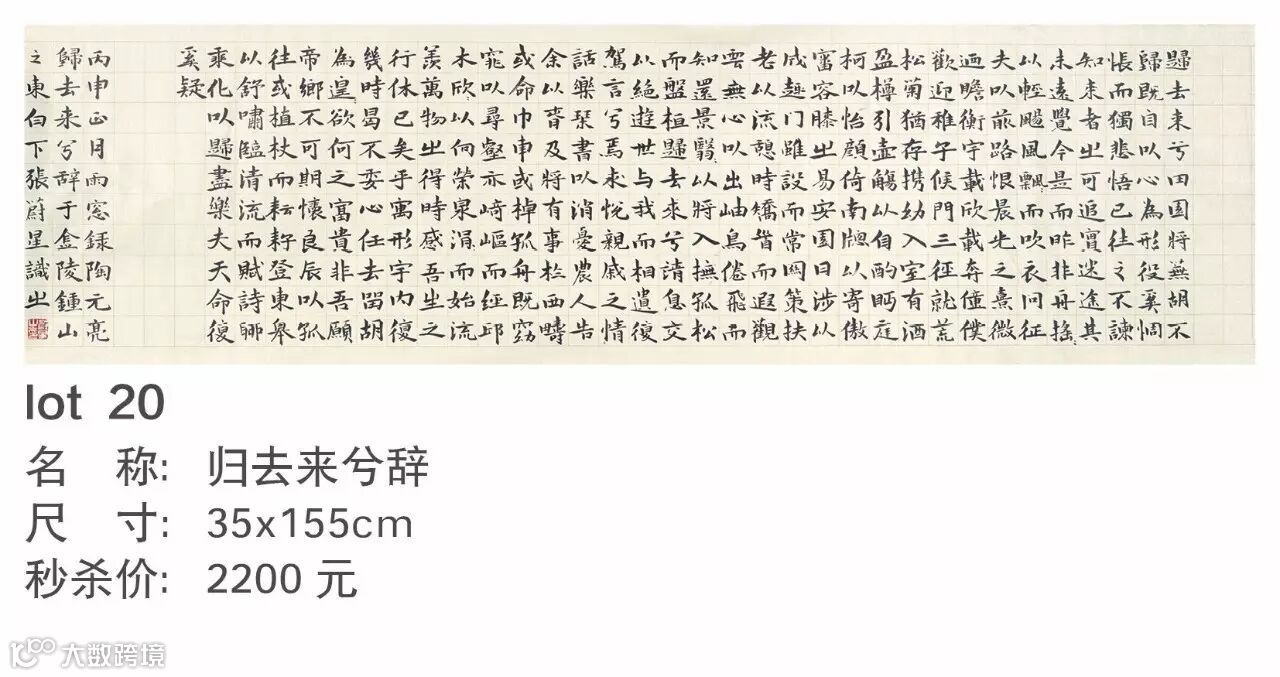 歸去来兮田園將蕪胡不
歸既自以心為形役奚惆
悵而獨悲悟已往之不諫
知来者之可追實迷途其
未遠覺今是而昨非舟搖
以輕颺風飄而吹衣問征
夫以前路恨晨光之熹微
迺瞻衡宇載欣載奔僮僕
歡迎稚子候門三徑就荒
松菊猶存携幼入室有酒
盈樽引壺觴以自酌眄庭
柯以怡顏倚南牕以寄傲
審容膝之易安園日涉以
成趣門雖設而常關策扶
老以流憩時矯首而遐觀
雲無心以出岫鳥倦飛而
知還景翳以將入撫孤松
而盤桓歸去來兮請息交
以絕遊世與我而相遺復
駕言兮焉求悅親戚之情
話樂琴書以消憂農人告
余以春及將有事於西疇
或命巾車或棹孤舟既窈
窕以尋壑亦崎嶇而經邱
木欣以向榮泉涓而始流
羨萬物之得時感吾生之
行休已矣乎寓形宇內復
幾時曷不委心任去留胡
為遑欲何之富貴非吾願
帝鄉不可期懷良辰以孤
往或植杖而耘耔登東皋
以舒嘯臨清流而賦詩聊
乘化以歸盡樂夫天命復
奚疑
丙申正月雨窓録陶元亮
歸去来兮辞于金陵鍾山
之東白下張蔚星識之
lot 20
名 称: 归去来兮辞
尺 寸: 35x155cm
秒杀价: 2200 元
大数跨境